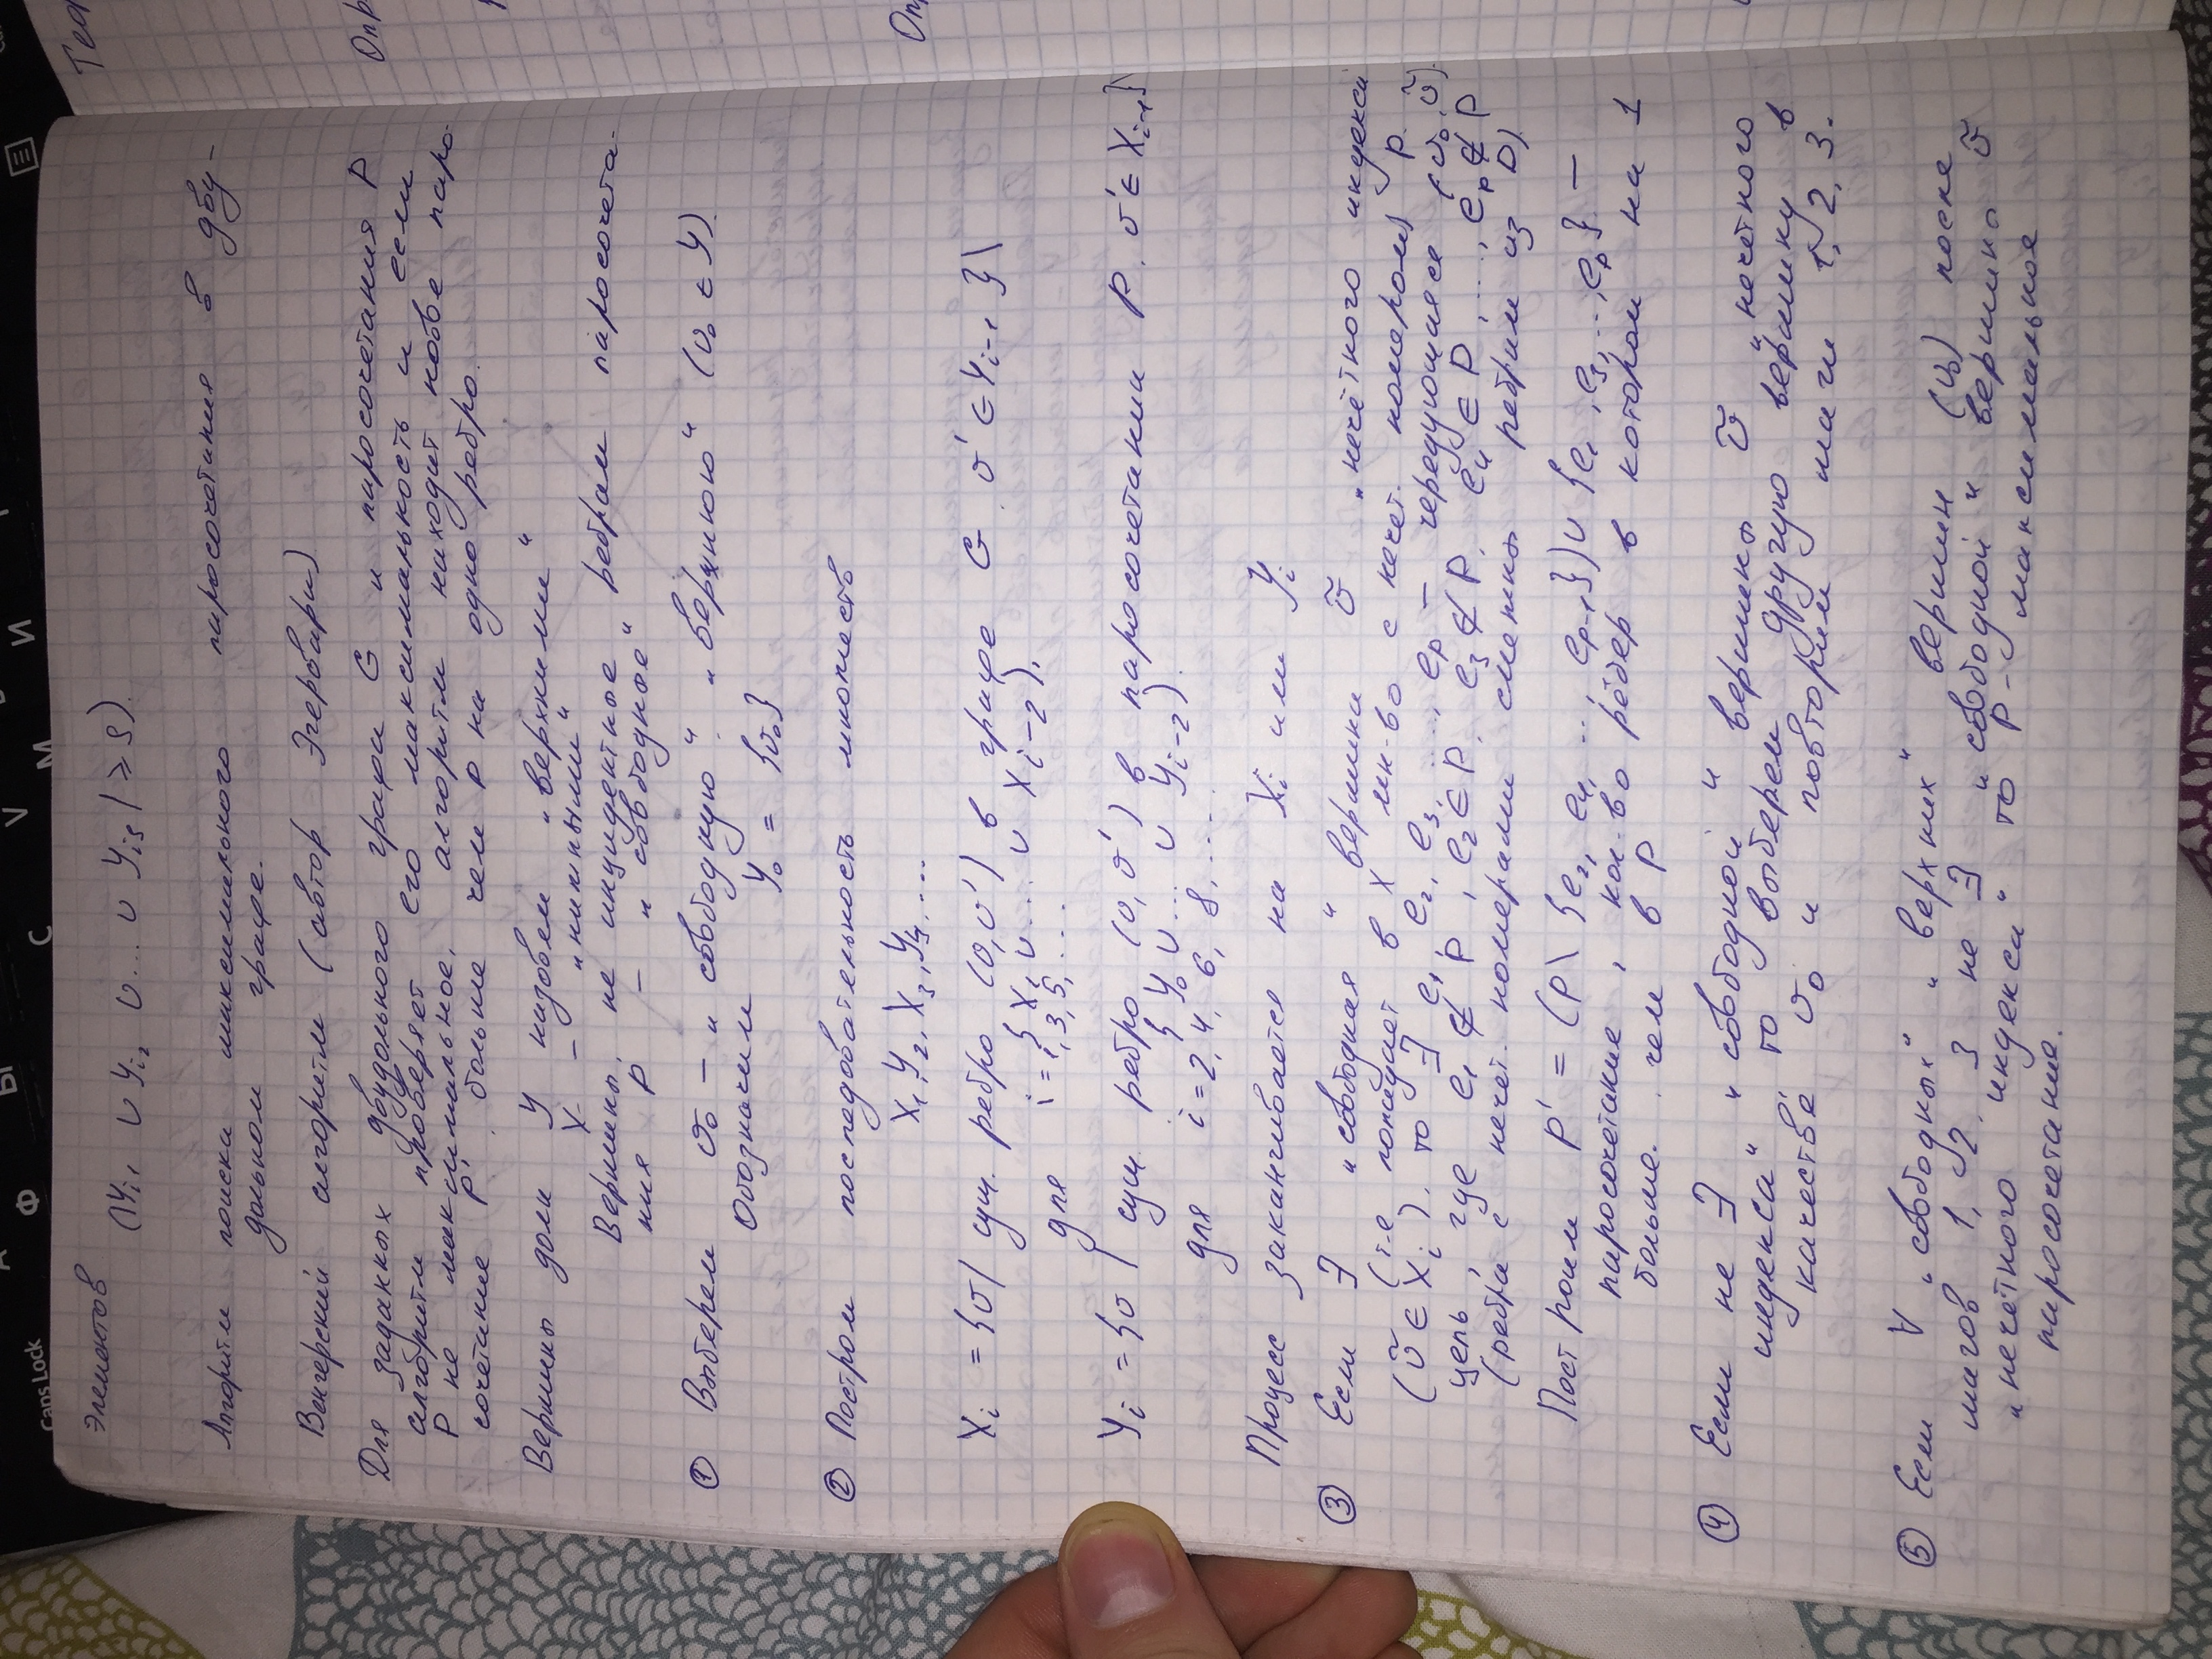 Caps Lock
А
Ф
Ы
С
V
М
И
элементов
(|Yi₁ ∪ Yi₂ ∪ ... ∪ Yis| ⩾ S).
Алгоритм поиска максимального паросочетания в дву-
дольном графе.
Венгерский алгоритм (автор Эгервари)
Для заданных двудольного графа G и паросочетания P
алгоритм проверяет его максимальность и если
P не максимальное, алгоритм находит новое паро-
сочетание P' больше чем P на одно ребро.
Вершины доли Y назовём „верхними“
X - „нижними“
Вершины, не инцидентные ребрам паросочета-
ния P - „свободные“
① Выберем v₀ - „свободную“ „верхнюю“ (v₀ ∈ Y).
Обозначим
Y₀ = {v₀}
② Построим последовательность множеств
X₁, Y₂, X₃, Y₄, ...
Xᵢ = {v | сущ. ребро (v, v') в графе G, v' ∈ Yᵢ₋₁} \
{X₁ ∪ ... ∪ Xᵢ₋₂),
для i = 1, 3, 5, ...
Yᵢ = {v | сущ. ребро (v, v') в паросочетании P, v' ∈ Xᵢ₋₁}
{Y₀ ∪ ... ∪ Yᵢ₋₂).
для i = 2, 4, 6, 8, ...
Процесс заканчивается на Xᵢ или Yᵢ
③ Если ∃ „свободная“ вершина ṽ „нечётного индекса
(т.е попадает в X мн-во с нечет. номером) P.
(ṽ ∈ Xᵢ), то ∃ e₁, e₂, e₃, ..., eₚ - чередующаяся (v₀, ṽ)
цепь, где e₁ ∉ P, e₂ ∈ P, e₃ ∉ P, e₄ ∈ P, ..., eₚ ∉ P
(ребра с нечет. номерами смежны ребрам из P).
Построим P' = (P \ {e₂, e₄, ..., eₚ₋₁}) ∪ {e₁, e₃, ..., eₚ} -
паросочетание, кол-во рёбер в котором на 1
больше, чем в P
④ Если не ∃ „свободной“ вершины ṽ „нечётного
индекса“, то выберем другую вершину в
качестве v₀ и повторим шаги 1, 2, 3.
⑤ Если ∀ „свободных“ „верхних“ вершин (v₀) после
шагов 1, 2, 3 не ∃ „свободной“ вершины ṽ
„нечётного индекса“ то P - максимальное
паросочетание.
Опр